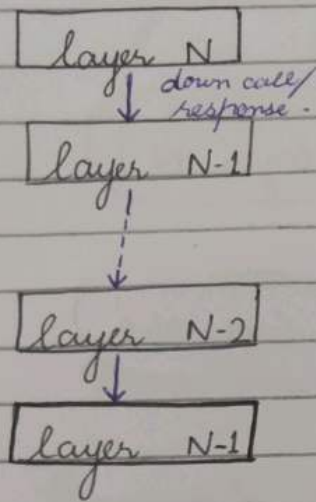 layer N
down call/
response.
layer N-1
layer N-2
layer N-1